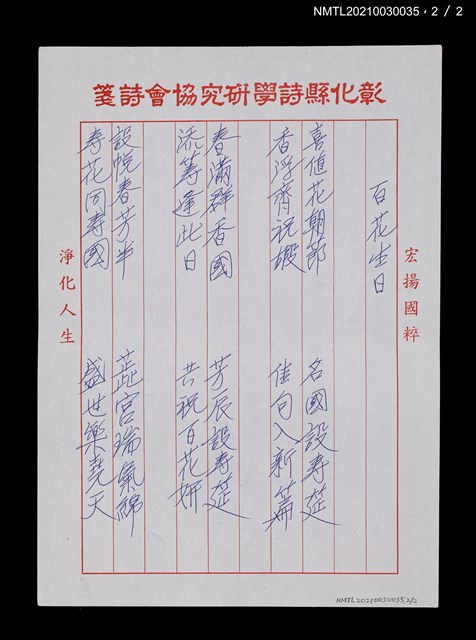 NMTL20210030035，2/2
彰化縣詩學研究協會詩箋
宏揚國粹
百花生日
喜值花朝節　名園設壽筵
香浮齊祝嘏　佳句入新篇
春滿群香國　芳辰設壽筵
添籌逢此日　共祝百花妍
設帨春芳半　蕋宮瑞氣綿
壽花同壽國　盛世樂堯天
淨化人生
NMTL20210030035,2/2